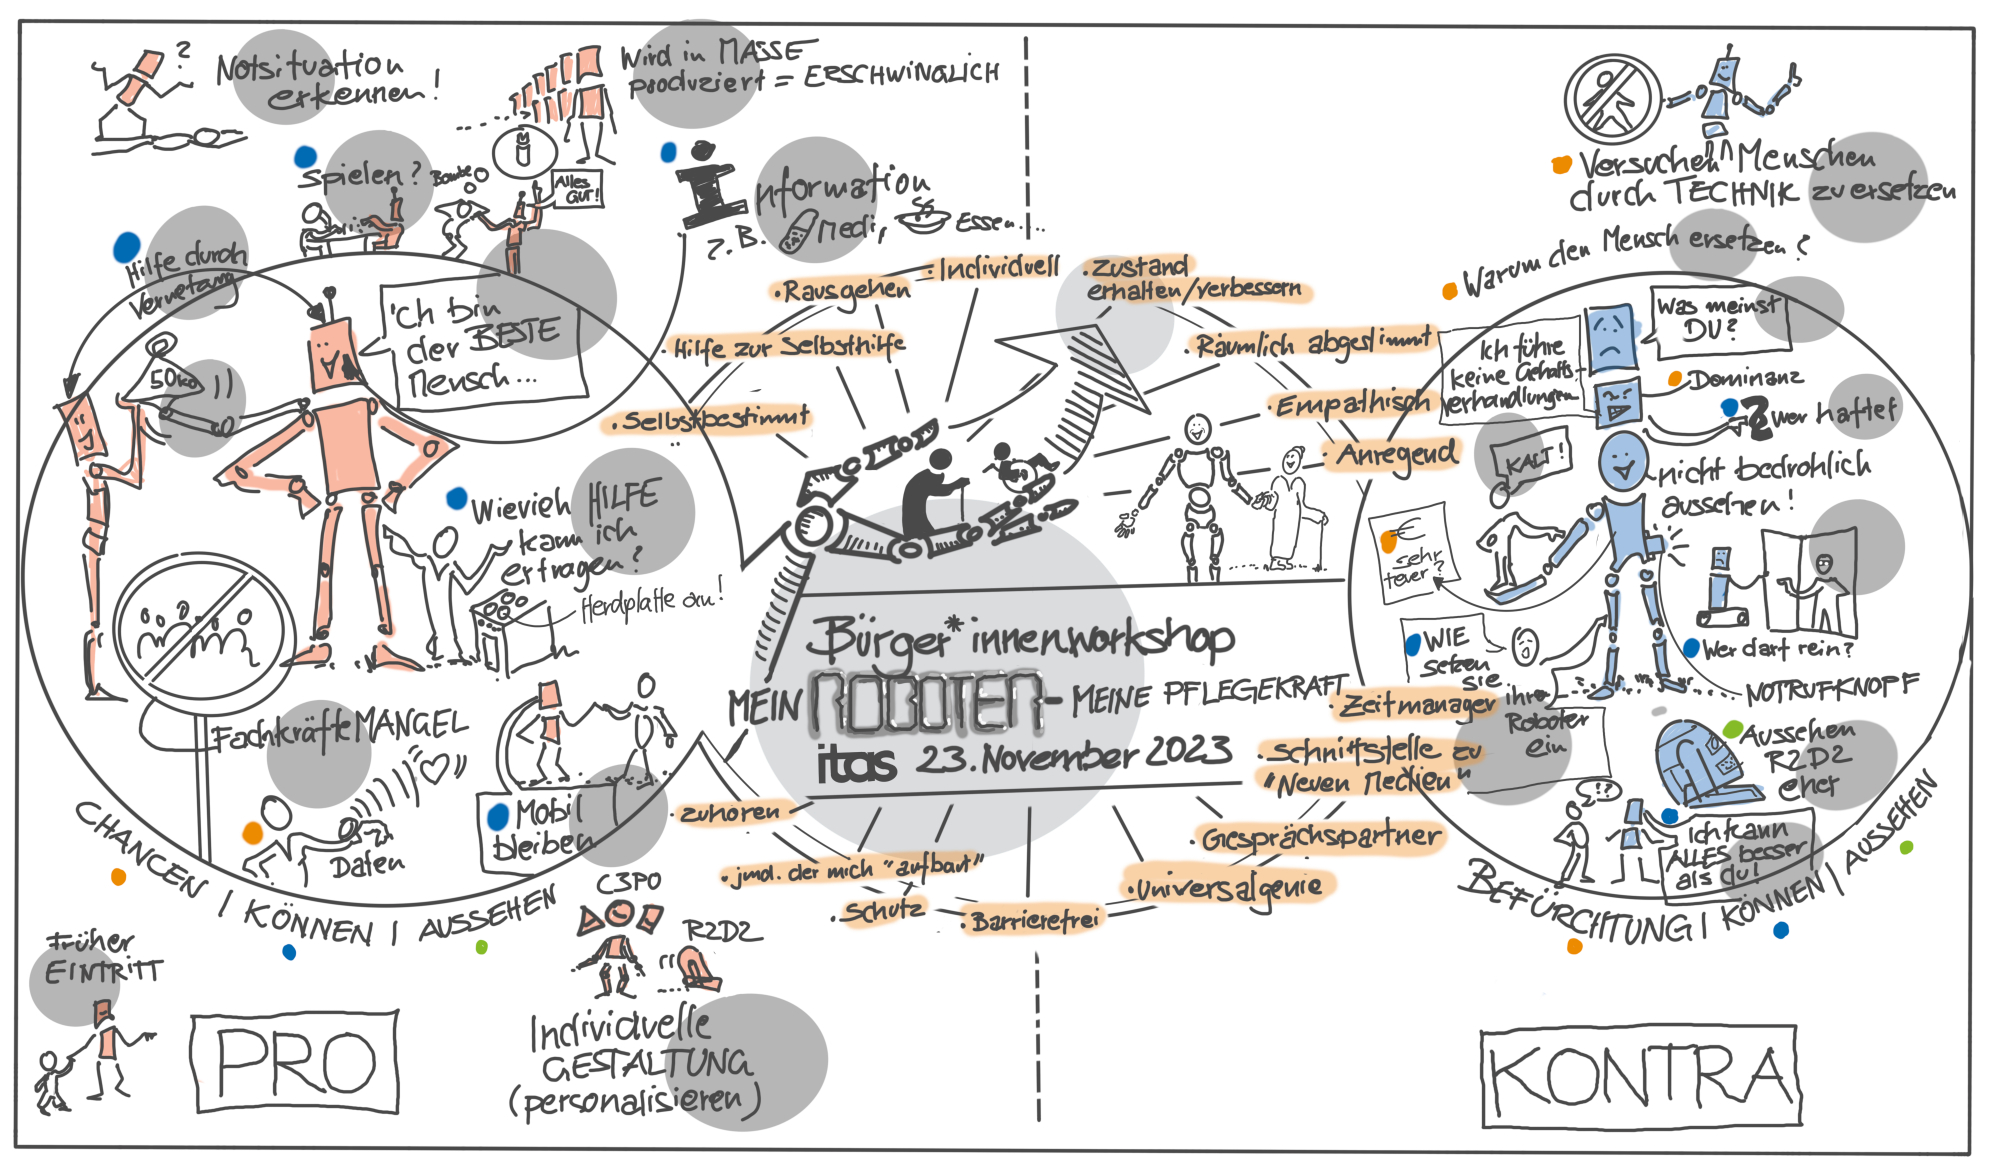 ?
Notsituation
erkennen!
Wird in MASSE
produziert = ERSCHWINGLICH
Spielen?
Bombe
Alles
GUT!
Information
z.B. Medi, Essen....
Hilfe durch
Vernetzung
50kg
'Ich bin
der BESTE
Mensch...
Wieviel HILFE
kann ich
ertragen?
Herdplatte an!
FachkräfteMANGEL
Daten
Mobil
bleiben
CHANCEN | KÖNNEN | AUSSEHEN
Früher
EINTRITT
PRO
C3PO
R2D2
Individuelle
GESTALTUNG
(personalisieren)
· Individuell
· Rausgehen
· Hilfe zur Selbsthilfe
· Selbstbestimmt
· Zustand
erhalten/verbessern
· Räumlich abgestimmt
· Empathisch
· Anregend
Bürger*innenworkshop
MEIN ROBOTER - MEINE PFLEGEKRAFT
itas 23. November 2023
· zuhören
· jmd. der mich "aufbaut"
· Schutz
· Barrierefrei
· Universalgenie
· Gesprächspartner
· Schnittstelle zu
"Neuen Medien"
· Zeitmanager
Versuchen Menschen
durch TECHNIK zu ersetzen
Warum den Mensch ersetzen?
Was meinst
DU?
Ich führe
keine Gehalts-
verhandlungen
Dominanz
? wer haftet
KALT!
nicht bedrohlich
aussehen!
€
sehr
teuer?
Wer darf rein?
NOTRUFKNOPF
WIE
setzen
sie
ihre
Roboter
ein
Aussehen
R2D2
eher
!?
Ich kann
ALLES besser
als du!
BEFÜRCHTUNG | KÖNNEN | AUSSEHEN
KONTRA